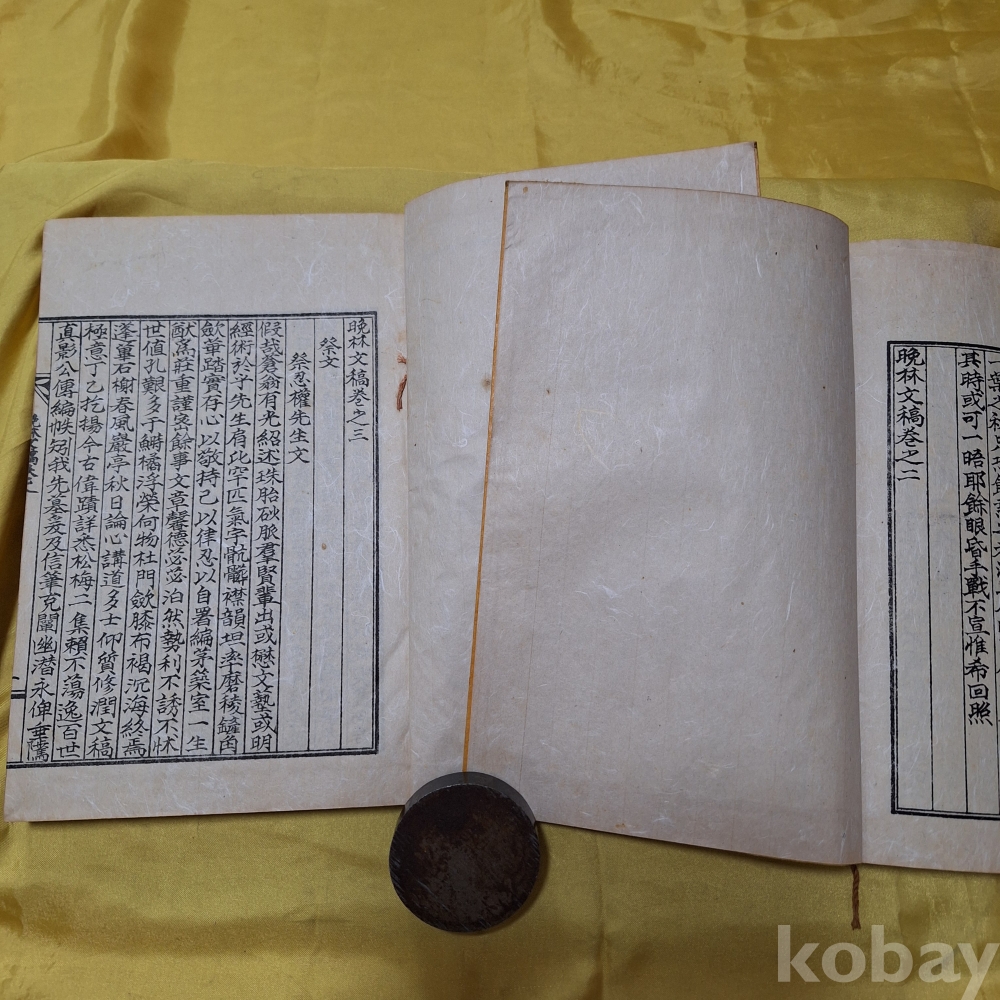 其時或可一晤耶餘眼昏手戰不宣惟希回照
晩林文稿卷之二
晩林文稿卷之三
祭文
祭忍權先生文
假哉蒼翁有光紹述珠胎砂脈羣賢輩出或懋文塾或明
經術於乎先生肩比罕匹氣宇骯髒襟韻坦率磨稜鏟角
斂華踏實存心以敬持己以律忍以自署編茅築室一生
猷爲莊重謹密餘事文章馨德苾苾泊然勢利不誘不怵
世値孔艱多于鱗橘浮榮何物杜門斂膝布褐沉海終焉
蓬蓽石榭春風巖亭秋日論心講道多士仰質修潤文稿
極意丁乙扢揚今古偉蹟詳悉松梅二集賴不蕩逸百世
眞影公傳編帙矧我先墓爰及信筆克闡幽潛永俾垂騭
kobay